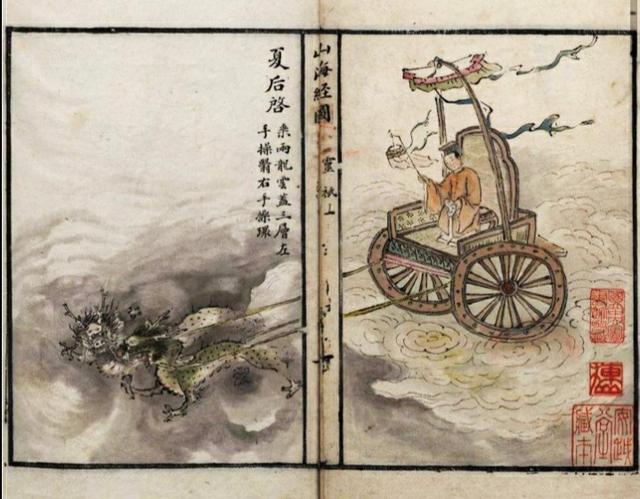 山海經圖
靈祇上
夏后啓
乘兩龍雲蓋三層左
手操翳右手操環
安越
堂
藏本